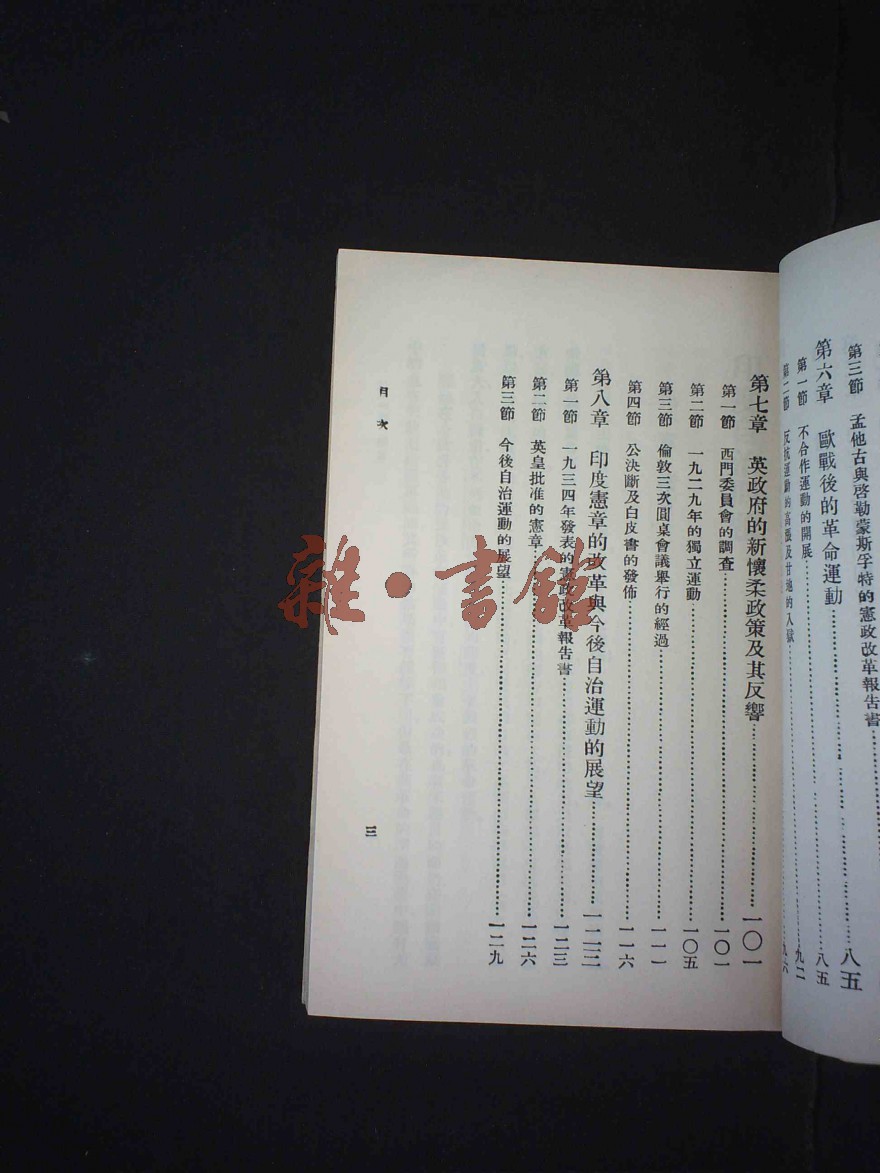 第三節 孟他古與啓勒蒙斯孚特的憲政改革報告書
第六章 歐戰後的革命運動 八五
第一節 不合作運動的開展 八五
第二節 反抗運動的高漲及甘地的入獄 九二
九六
第七章 英政府的新懷柔政策及其反響 一〇一
第一節 西門委員會的調查 一〇一
第二節 一九二九年的獨立運動 一〇五
第三節 倫敦三次圓桌會議舉行的經過 一一一
第四節 公決斷及白皮書的發佈 一一六
第八章 印度憲章的改革與今後自治運動的展望 一二三
第一節 一九三四年發表的憲政改革報告書 一二三
第二節 英皇批准的憲章 一二六
第三節 今後自治運動的展望 一二九
目次
三
雜·書館